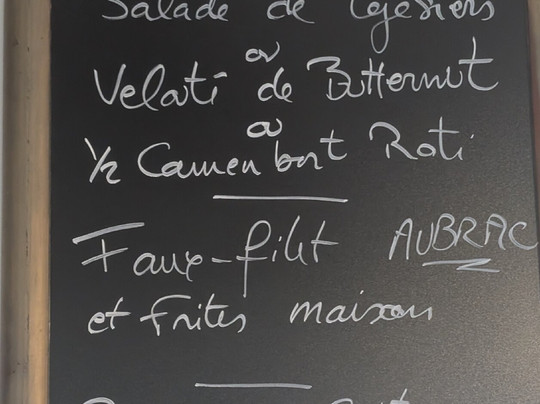 Salade de Gésiers
ou
Velouté de Butternut
ou
1/2 Camembert Roti
Faux-filet AUBRAC
et frites maison